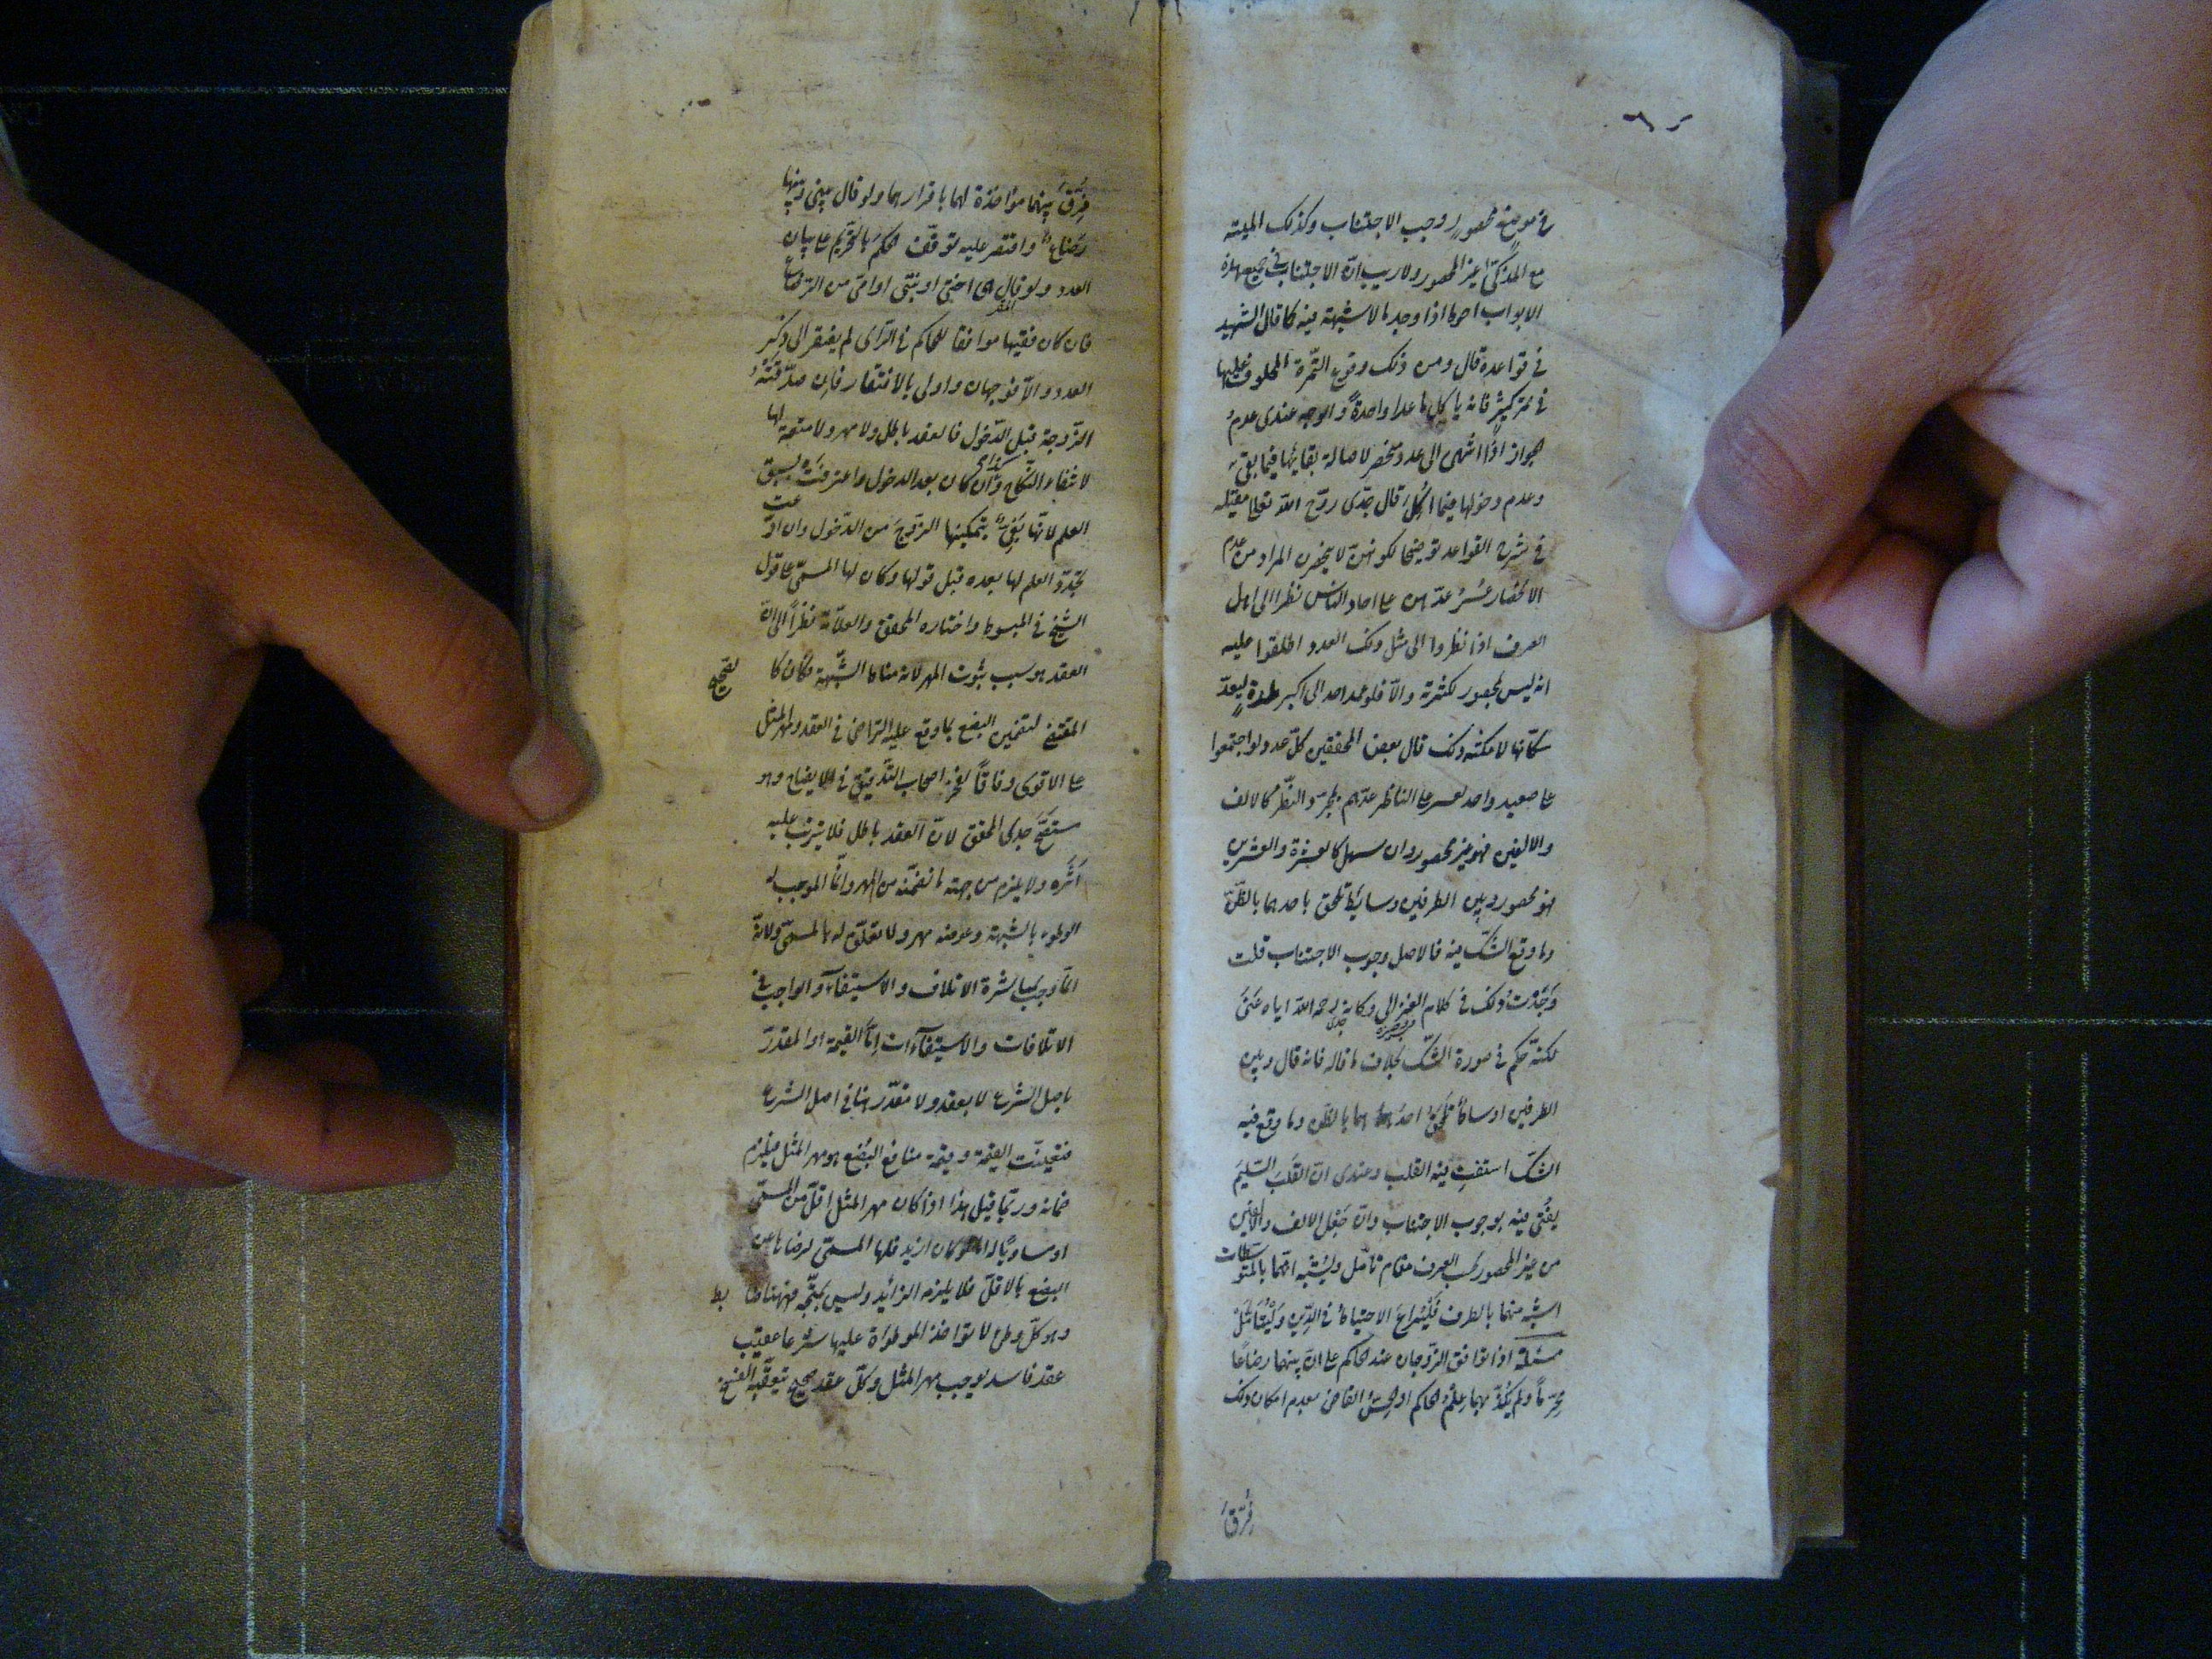 في موضع محصور وجب الاجتناب وكذلك الميتة
مع المذكى غير المحصور ولا ريب ان الاجتناب في جميع هذه
الابواب احوط اذا وجد ما لا شبهة فيه كما قال الشهيد
في قواعده قال ومن ذلك وقوع الثمرة المحلوف عليها
في تمر كثير فانه ياكل ما عدا واحدة والوجه عندى عدم
جواز اذا انتهى الى عدد منحصر لاصالة بقائها فيما بقى
وعدم دخولها فيما اكل قال جدى روح الله تعالى مقيله
في شرح القواعد توضيحا لكونهن لا ينحصرن المراد من عدم
الانحصار عسر عدهن على احاد الناس نظرا الى اهل
العرف اذا نظروا الى مثل ذلك العدد اطلقوا عليه
انه ليس بمحصور لكثرته والا فلو عمد احد الى اكبر بلدة ليعد
سكانها لامكنه ذلك قال بعض المحققين كل عدد لو اجتمعوا
على صعيد واحد لعسر على الناظر عدهم بمجرد النظر كالالف
والالفين فهو غير محصور وان سهل كالعشرة والعشرين
فهو محصور وبين الطرفين وسائط تلحق باحدهما بالظن
وما وقع الشك فيه فالاصل وجوب الاجتناب قلت
وجدت ذلك في كلام الغزالى وكانه جدى رحمه الله اياه عنى
لكنه حكم في صورة الشك بخلاف ما قاله فانه قال وبين
الطرفين اوساط تلحق باحدهما بالظن وما وقع فيه
الشك استفت فيه القلب وعندى ان القلب السليم
يفتى فيه بوجوب الاجتناب وان جعل الالف والالفين
من غير المحصور بحسب العرف مقام تامل ويشبه انهما بالمتوسطات
اشبه منهما بالطرف فليراع الاحتياط في الدين وليتامل
مسئلة اذا توافق الزوجان عند الحاكم على ان بينهما رضاعا
محرما ولم يكذبهما علم الحاكم او الحس القاضى بعدم امكان ذلك
فرق
فرق بينهما مؤاخذة لهما باقرارهما ولو قال بينى وبينها
رضاع واقتصر عليه توقف الحكم بالتحريم على بيان
العدد ولو قال هى اختى او بنتى او امى من الرضاع
فان كان المقر فقيها موافقا للحاكم في الراى لم يفتقر الى ذكر
العدد والا فوجهان واولى بالافتقار فان صدقته
الزوجة قبل الدخول فالعقد باطل ولا مهر ولا متعة لها
لانتفاء النكاح وكذا ان كان بعد الدخول واعترفت بسبق
العلم لانها بغى بتمكينها الزوج من الدخول وان ادعت
تجدد العلم لها بعده قبل قولها وكان لها المسمى على قول
الشيخ في المبسوط واختاره المحقق والعلامة نظرا الى ان
العقد هو سبب ثبوت المهر لانه مناط الشبهة فكان كا
لصحيح
المقتضى لتضمين البضع بما وقع عليه التراضى في العقد ومهر المثل
على الاقوى وفاقا لفخر اصحاب التدقيق في الايضاح وهو
مستفتح جدى المحقق لان العقد باطل فلا يترتب عليه
اثره ولا يلزم من جهته ما تضمنه من المهر وانما الموجب له
الوطء بالشبهة وعوضه مهر ولا تعلق له بالمسمى ولانه
انما وجب بمباشرة الاتلاف والاستيفاء والواجب في
الاتلافات والاستيفاآت انما القيمة او المقدر
باصل الشرع لا بعقد ولا مقدر هنا في اصل الشرع
فتعينت القيمة وقيمة منافع البضع هو مهر المثل فيلزم
ضمانه وربما قيل هذا اذا كان مهر المثل اقل من المسمى
او مساويا له اما لو كان ازيد فلها المسمى لرضاها عن
البضع بالاقل فلا يلزمه الزائد وليس بمتجه فههنا ضابط
وهو كل وطى لا تؤاخذ الموطوءة عليها شرعا عقيب
عقد فاسد يوجب مهر المثل وكل عقد صحيح يتعقبه الفسخ